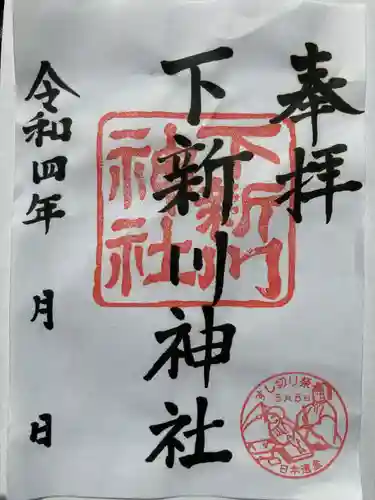 奉拝
下新川神社
令和四年 月 日
下新川
神社
すし切り祭
5月5日
日本遺産